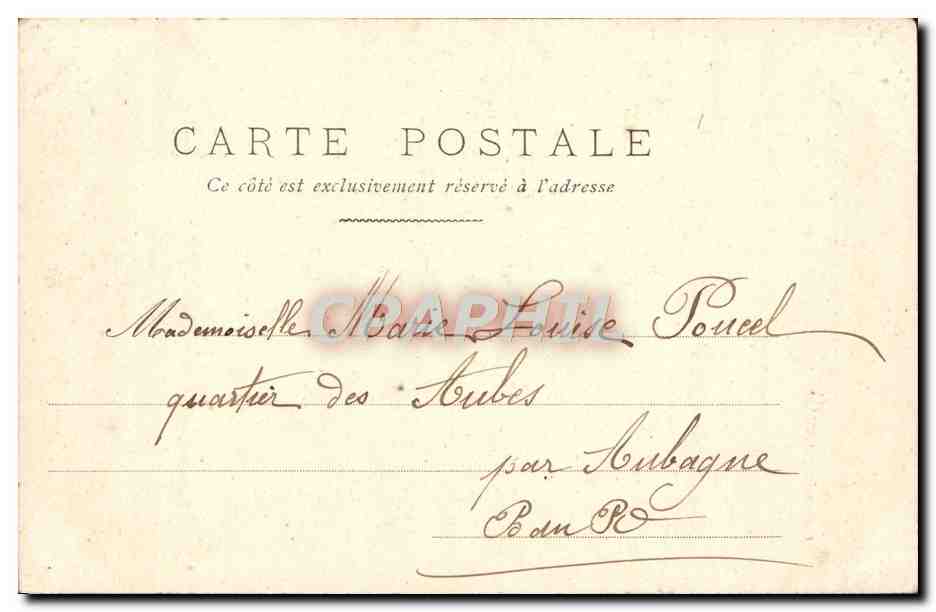 CARTE POSTALE
Ce côté est exclusivement réservé à l'adresse
CPAPHIL
Mademoiselle Marie Louise Poucel
quartier des Aubes
par Aubagne
B du R